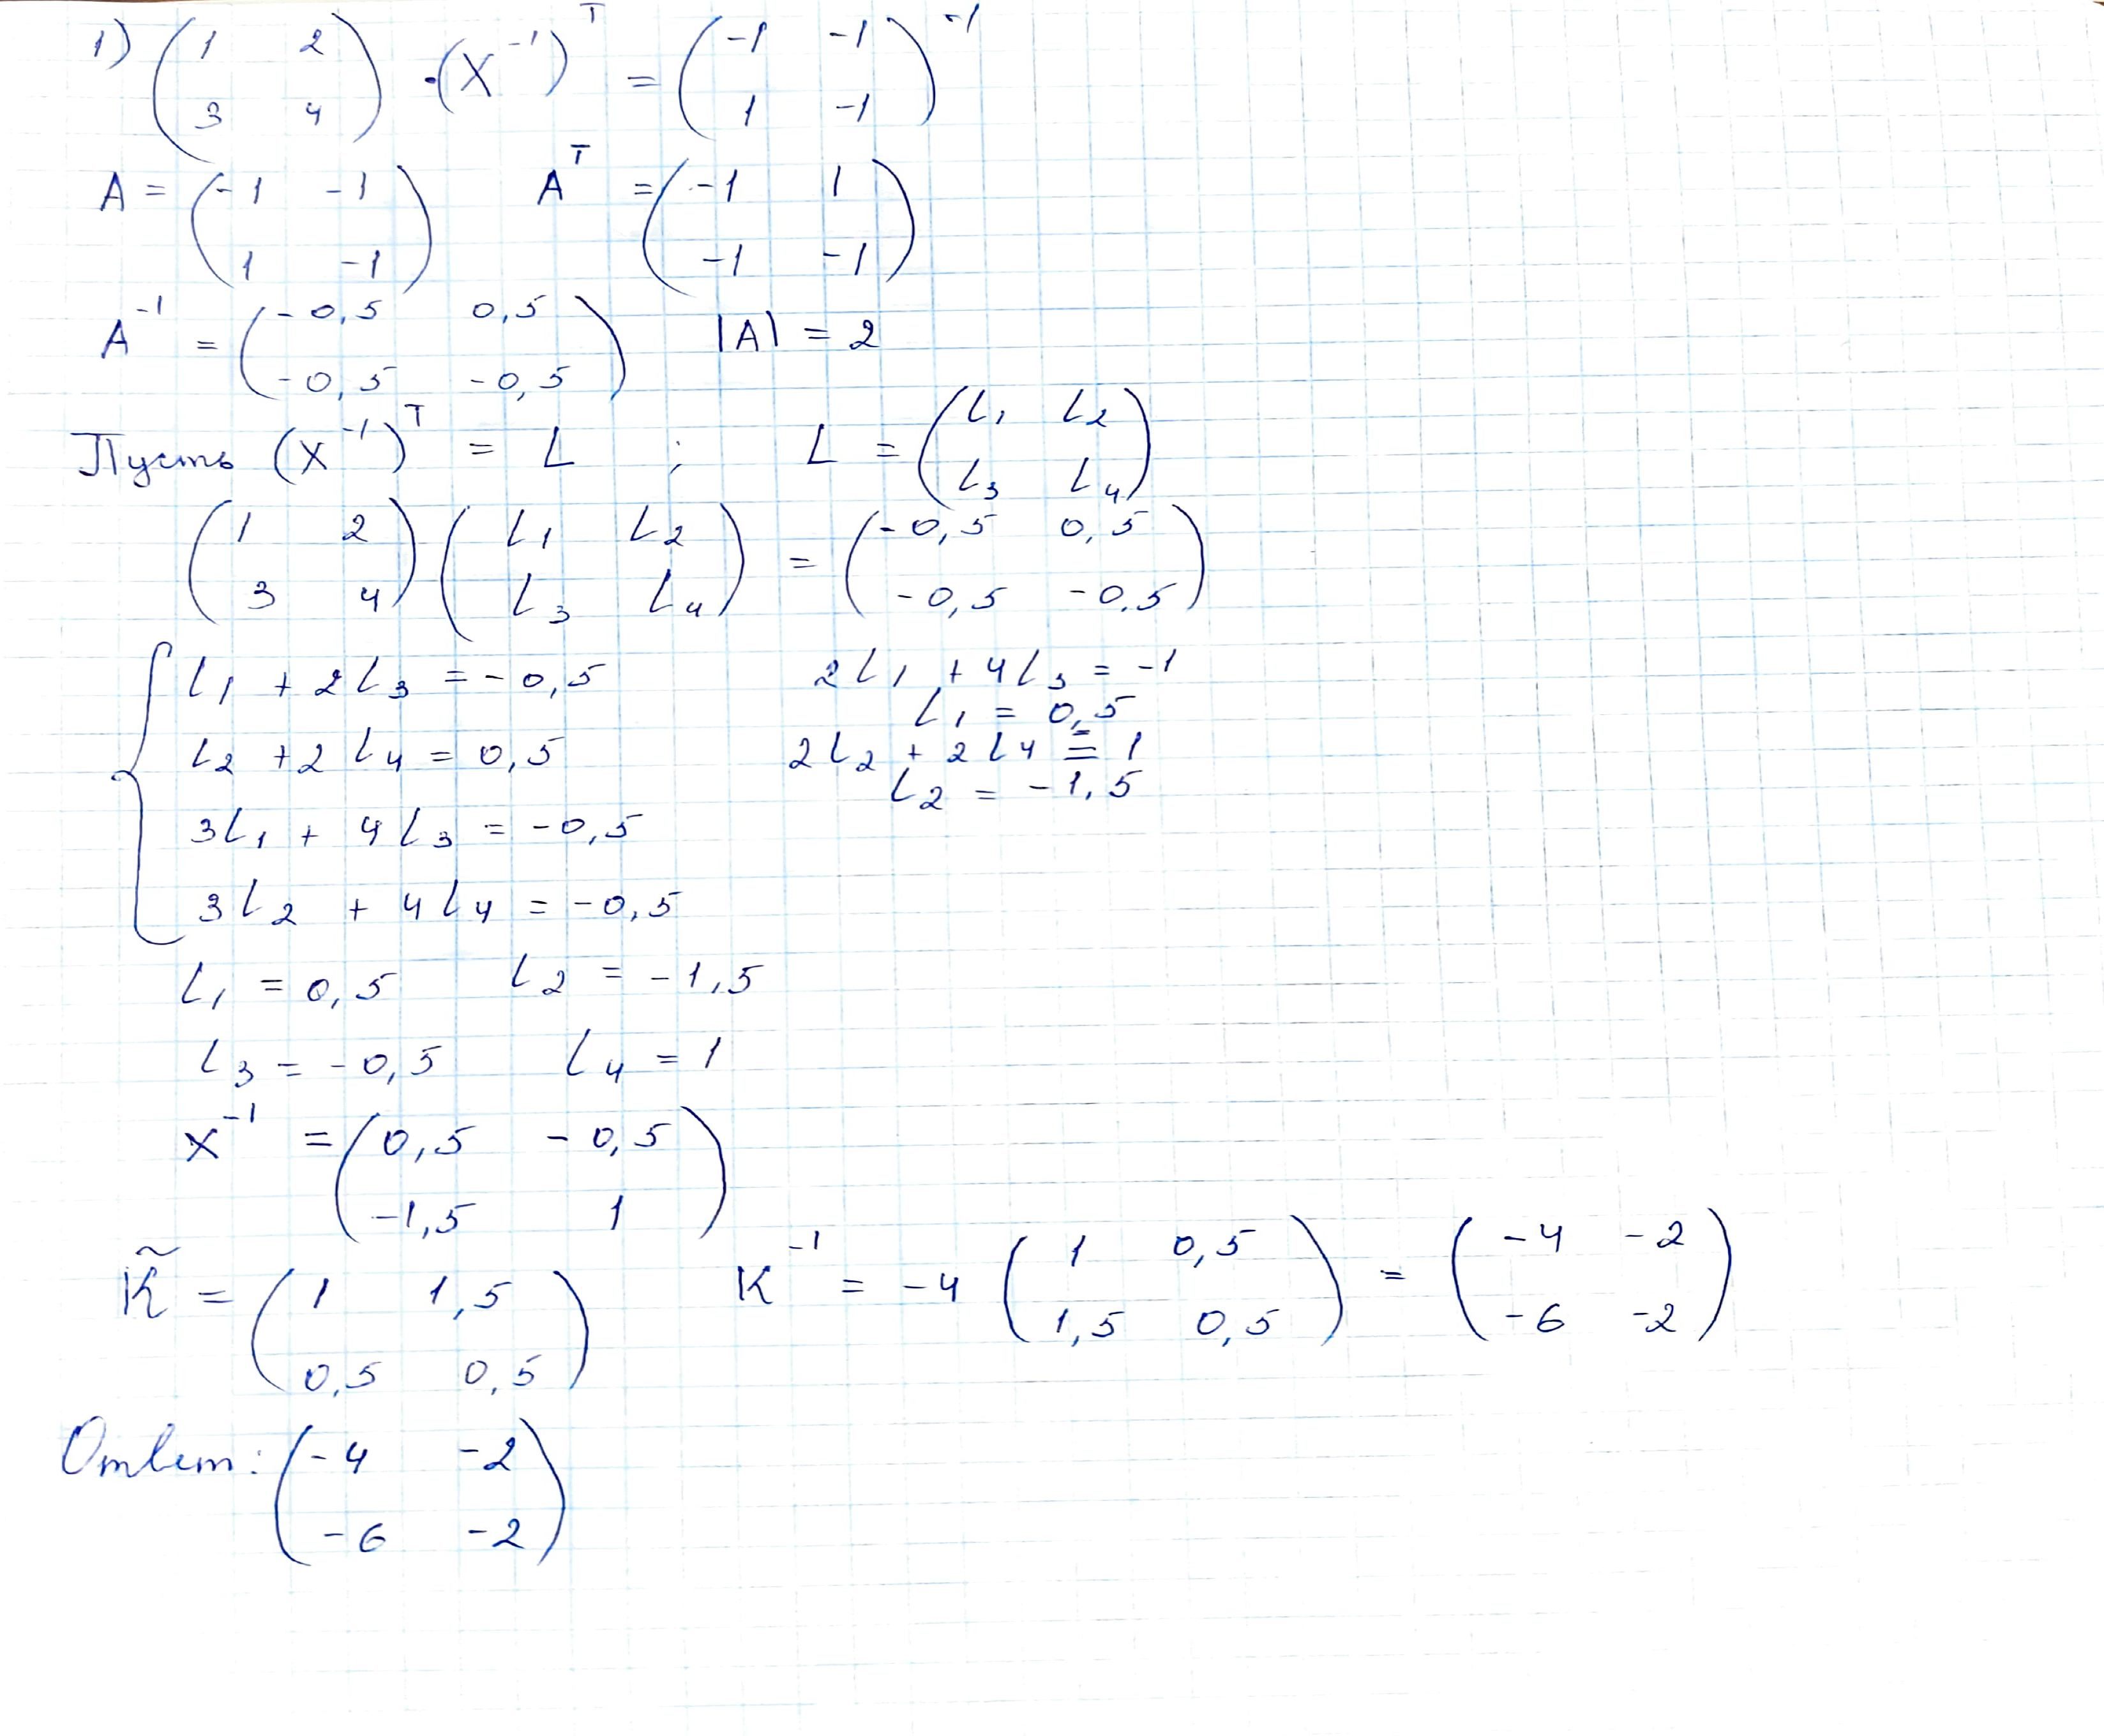 1) ( 1 2 ; 3 4 ) · (X⁻¹)ᵀ = ( -1 -1 ; 1 -1 )⁻¹
A = ( -1 -1 ; 1 -1 ) Aᵀ = ( -1 1 ; -1 -1 )
A⁻¹ = ( -0,5 0,5 ; -0,5 -0,5 ) |A| = 2
Пусть (X⁻¹)ᵀ = L ; L = ( L₁ L₂ ; L₃ L₄ )
( 1 2 ; 3 4 ) ( L₁ L₂ ; L₃ L₄ ) = ( -0,5 0,5 ; -0,5 -0,5 )
L₁ + 2L₃ = -0,5 2L₁ + 4L₃ = -1
L₁ = 0,5
L₂ + 2L₄ = 0,5 2L₂ + 2L₄ = 1
L₂ = -1,5
3L₁ + 4L₃ = -0,5
3L₂ + 4L₄ = -0,5
L₁ = 0,5 L₂ = -1,5
L₃ = -0,5 L₄ = 1
X⁻¹ = ( 0,5 -0,5 ; -1,5 1 )
K̃ = ( 1 1,5 ; 0,5 0,5 ) K⁻¹ = -4 ( 1 0,5 ; 1,5 0,5 ) = ( -4 -2 ; -6 -2 )
Ответ: ( -4 -2 ; -6 -2 )